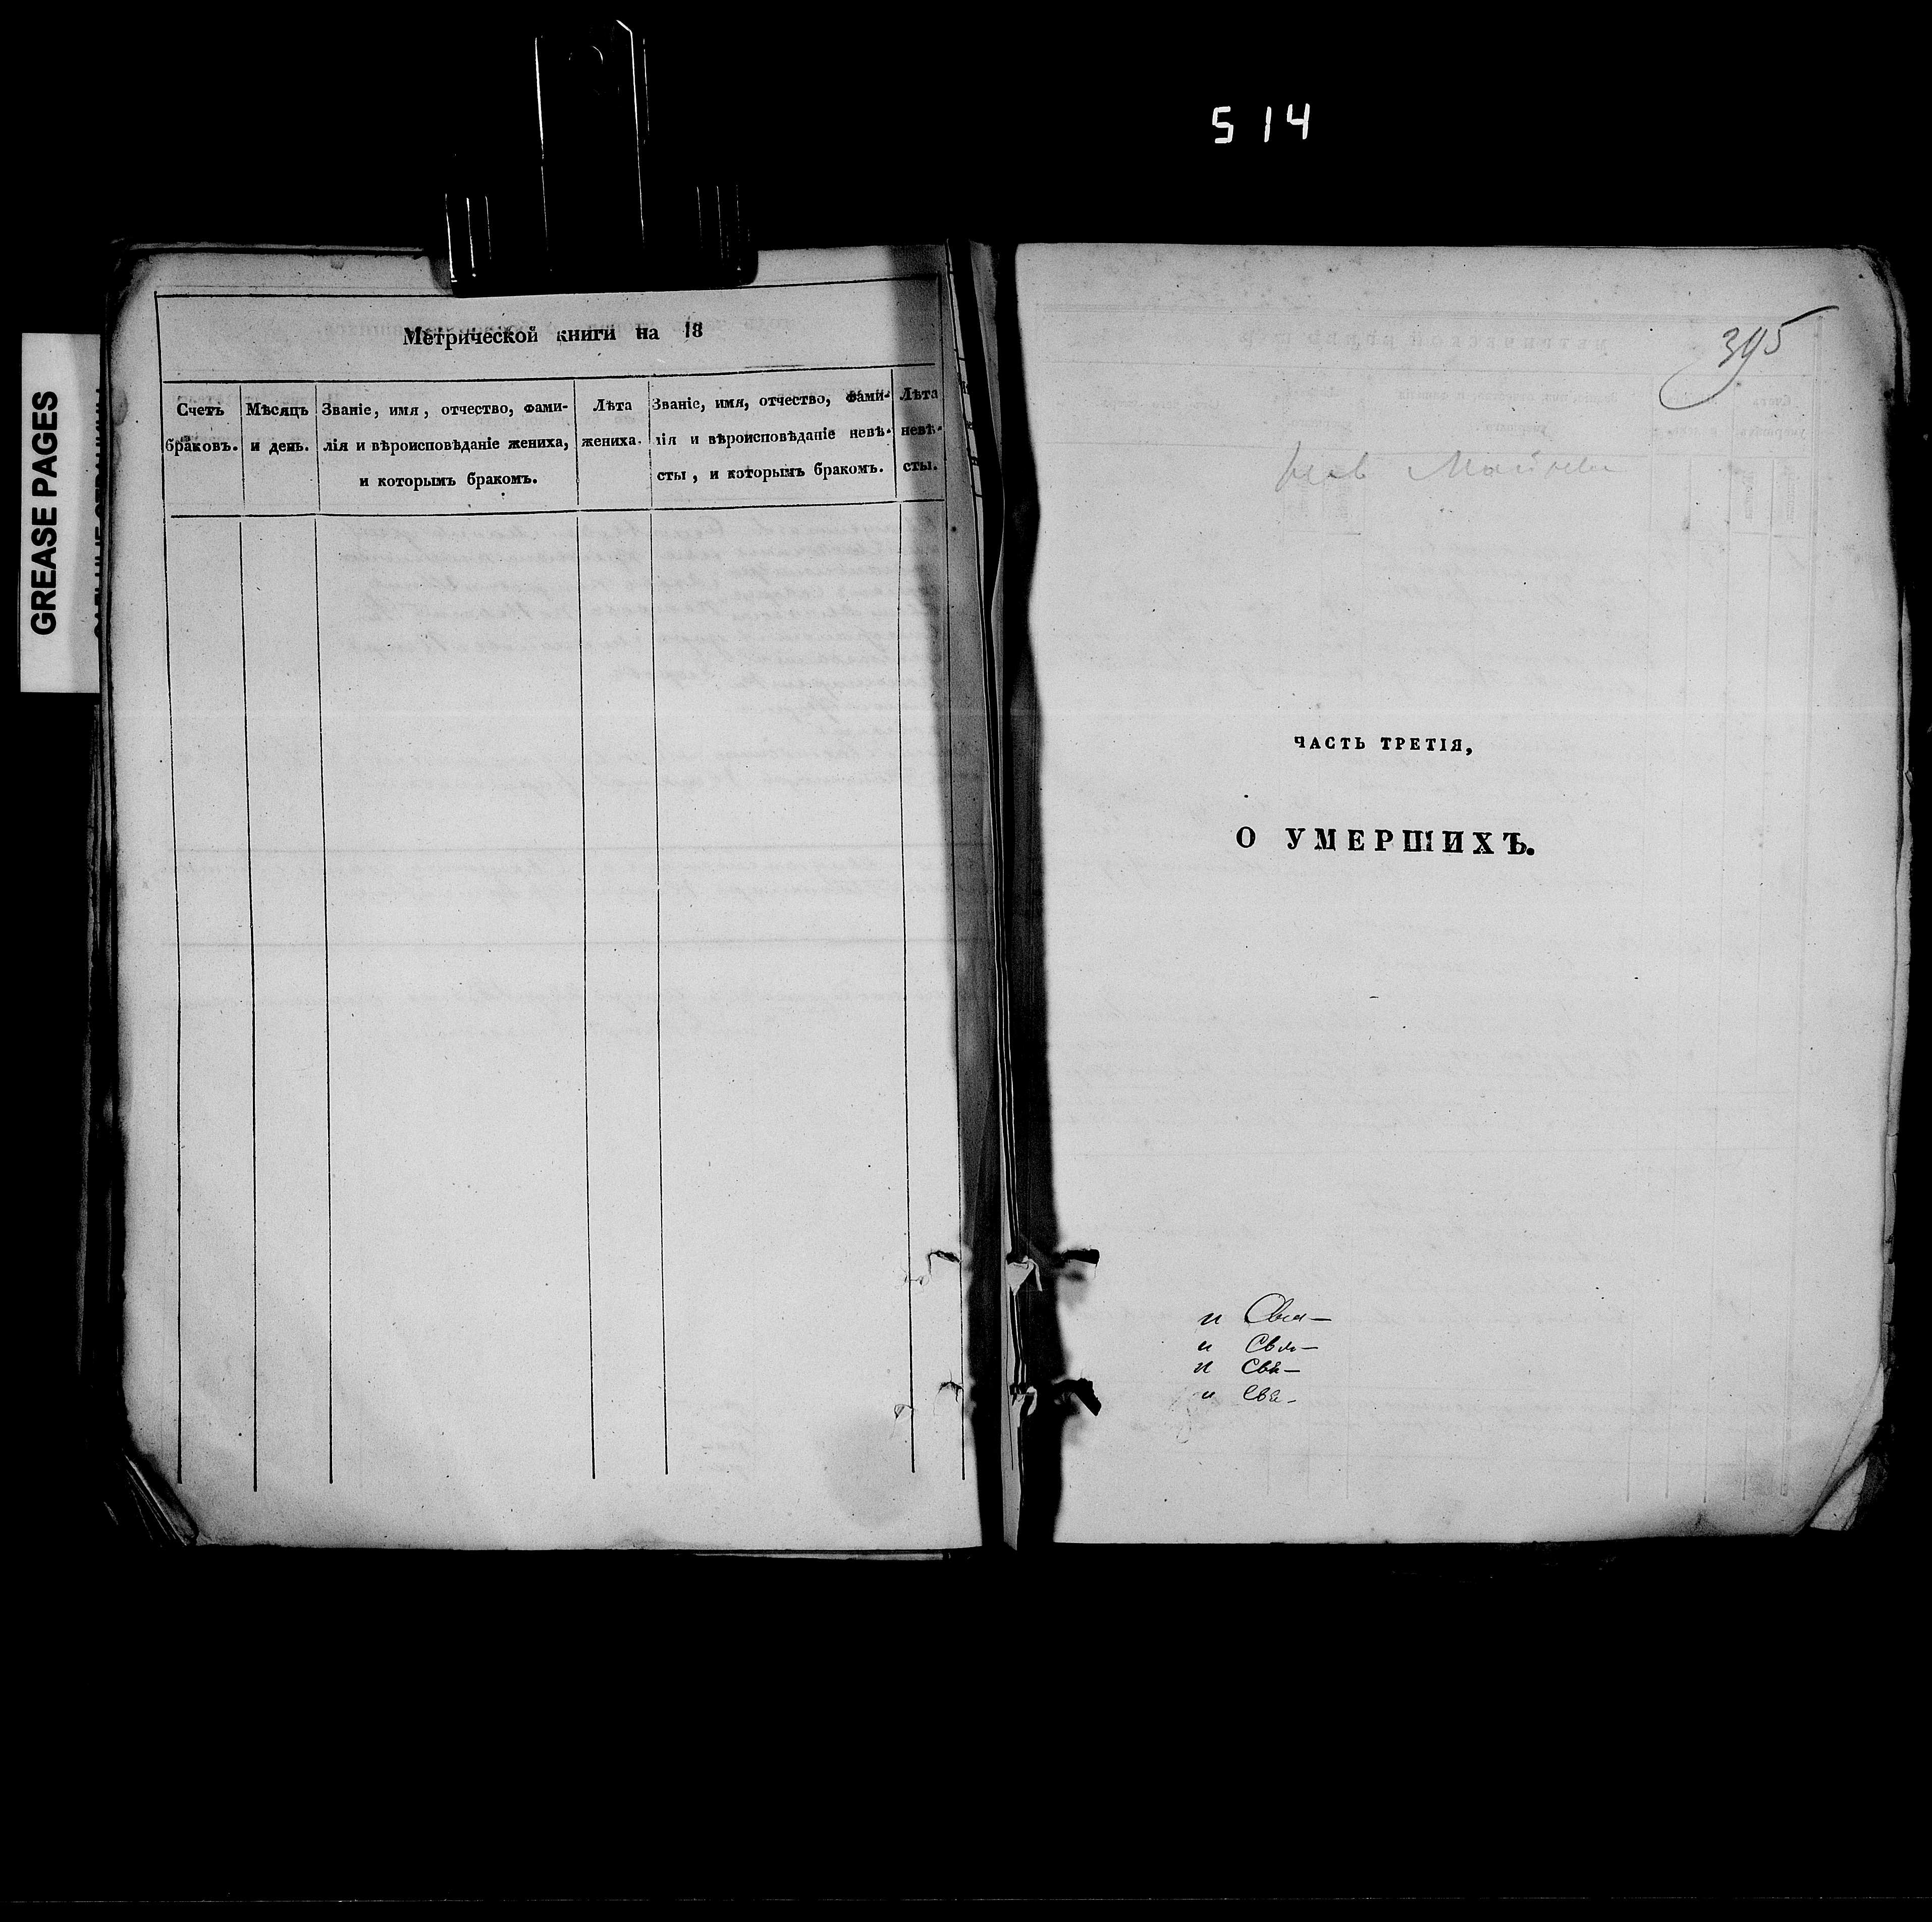 514
GREASE PAGES
Метрической книги на 18
Счетъ браковъ.
Мѣсяцъ и день.
Званіе, имя, отчество, фами-
лія и вѣроисповѣданіе жениха,
и которымъ бракомъ.
Лѣта жениха.
Званіе, имя, отчество, фами-
лія и вѣроисповѣданіе невѣ-
сты, и которымъ бракомъ.
Лѣта невѣ-
сты.
395
ЧАСТЬ ТРЕТІЯ,
О УМЕРШИХЪ.
и Свя—
и Свя—
и Свя—
и Свя-